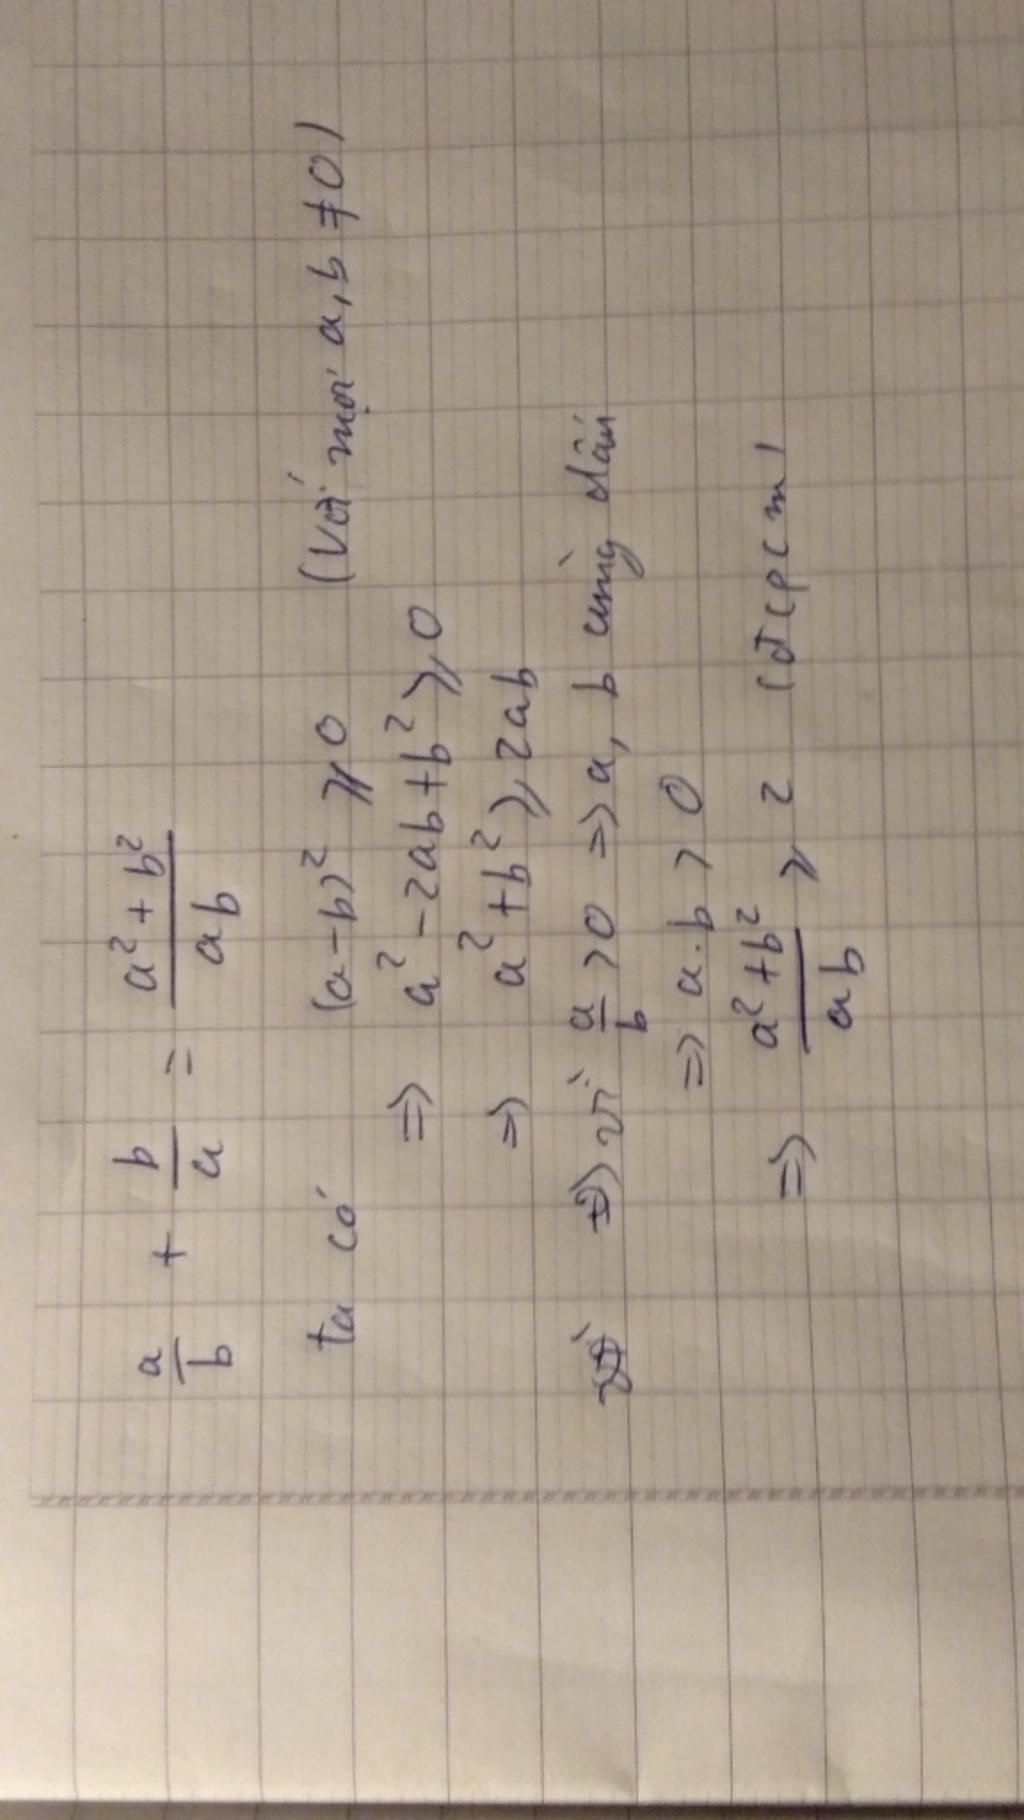 a/b + b/a = (a² + b²)/ab
ta có (a-b)² ⩾ 0 (với mọi a, b ≠ 0)
=> a² - 2ab + b² ⩾ 0
=> a² + b² ⩾ 2ab
vì a/b > 0 => a, b cùng dấu
=> a.b > 0
=> (a² + b²)/ab ⩾ 2 (đcpcm)